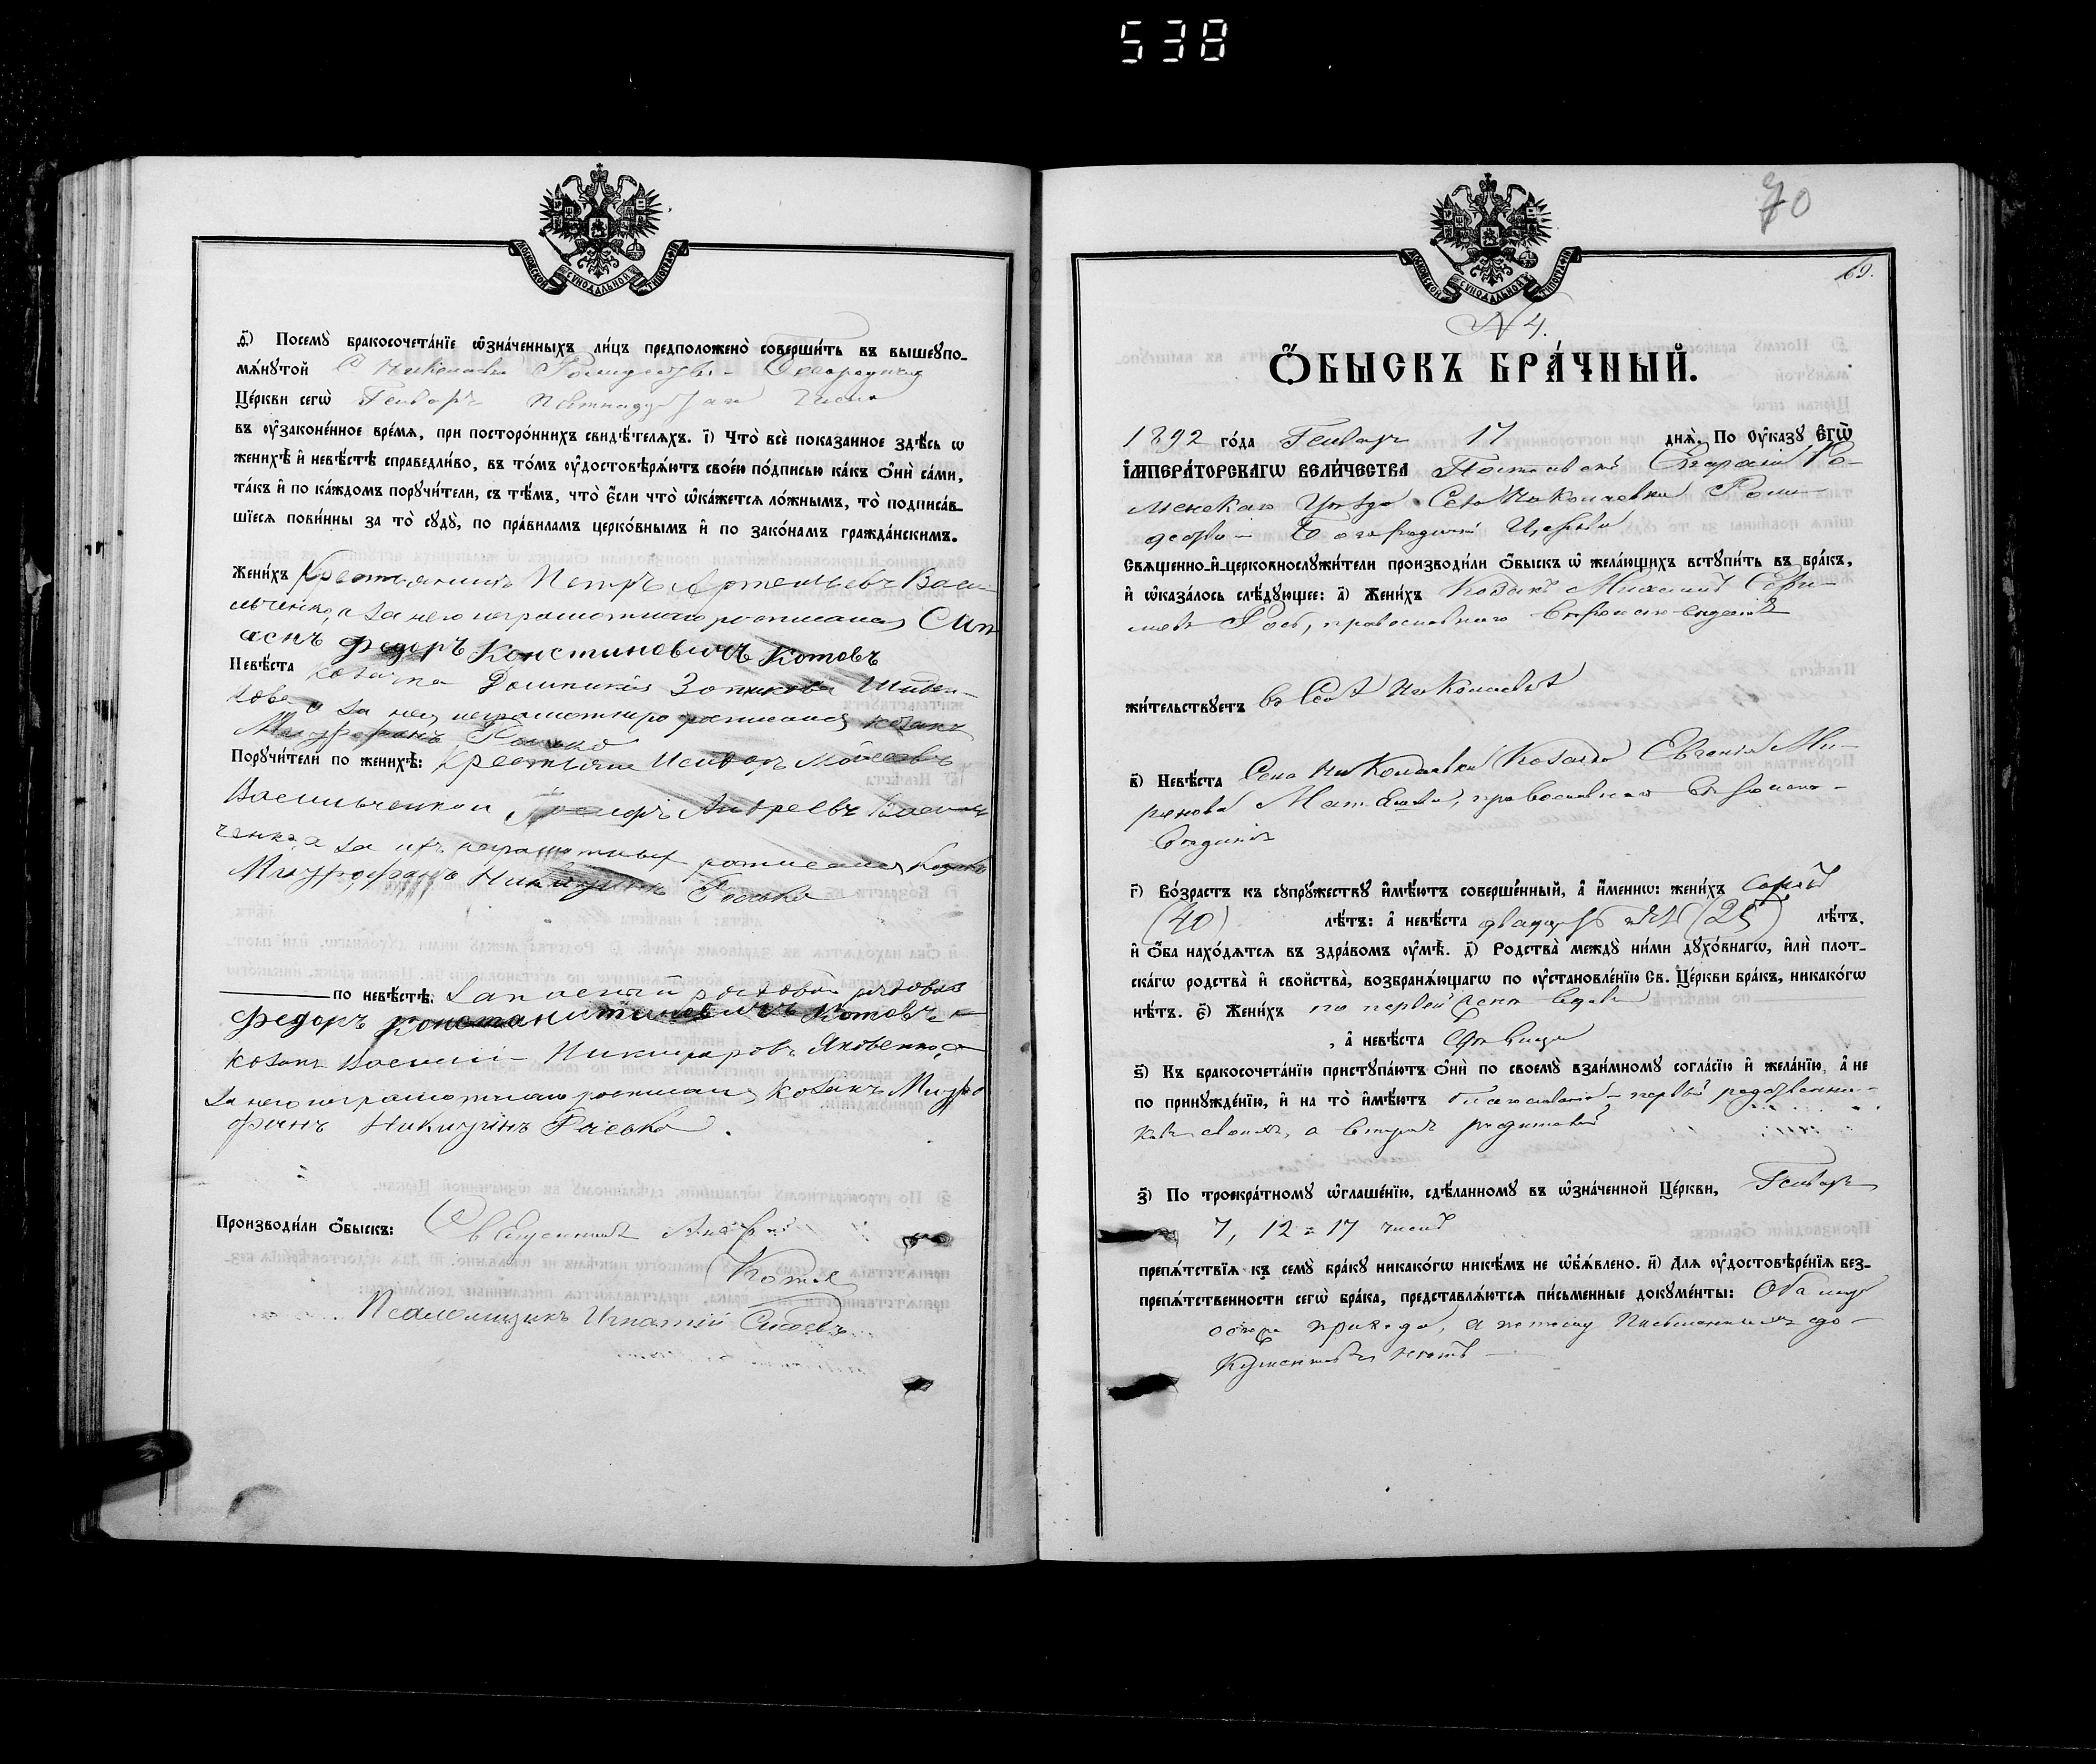 538
МОСКОВСКОЙ СУНОДАЛЬНОЙ ТИПОГРАФІИ
ѳ҃) Посемꙋ̀ бракосочета́нїе ѡ҆зна́ченныхъ ли́цъ предположено̀ соверши́ть въ вышеꙋпо-
мѧ́нꙋтой С Николаевки Рождество- Богородичной
Це́ркви сегѡ̀ Генваря пятнадцатаго числа
въ ᲂу҆законе́нное вре́мѧ, при посторо́ннихъ свидѣ́телѧхъ. і҃) Что̀ всѐ показанное здѣ́сь ѡ
женихѣ̀ и҆ невѣ́стѣ справедли́во, въ то́мъ ᲂу҆достовѣрѧ́ютъ свое́ю по́дписью ка́къ ѻ҆нѝ са́ми,
та́къ и҆ по ка́ждомъ порꙋчи́тели, съ тѣ́мъ, что̀ є҆́сли что̀ ѡ҆ка́жетсѧ ло́жнымъ, то̀ подписа́в-
шїесѧ пови́нны за то̀ сꙋдꙋ̀, по пра́виламъ церко́внымъ и҆ по зако́намъ гражда́нскимъ.
Жени́хъ Крестьянинъ Петръ Артемьевъ Васи-
льченко, а за него неграмотнаго росписался
Федоръ Констиновичъ Котовъ
Невѣ́ста козачка
а за нея неграмотную росписался козакъ
Митрофанъ Расько
Порꙋчи́тели по женихѣ̀: Крестьяне Исидоръ Моисеевъ
Васильченко и Андреевъ Василь
ченко, а за ихъ неграмотныхъ росписался Козакъ
Митрофанъ Никитинъ Расько
по невѣ́стѣ: Запасный рядовой
Федоръ Константиновичъ Котовъ и
козакъ Василий Никифоровъ Яковенко, а
за него неграмотнаго росписался Козакъ Митро
фанъ Никитинъ Расько.
Производи́ли ѻ҆́быскъ: Священникъ Андрей
Котов
Псаломщикъ Игнатий
70
69.
МОСКОВСКОЙ СУНОДАЛЬНОЙ ТИПОГРАФІИ
N 4.
Ѻ҆́БЫСКЪ БРА́ЧНЫЙ.
1892 го́да Генваря 17 днѧ̀. По Оу҆ка́зꙋ Є҆гѡ̀
І҆МПЕРА́ТОРСКАГѠ ВЕЛИ́ЧЕСТВА Полтавской Епархии Ро-
менскаго Уѣзда Села Николаевки Рож-
дество- Богородичной Церкви
Свѧщенно-и҆-церковнослꙋжи́тели производи́ли ѻ҆́быскъ ѡ҆ жела́ющихъ встꙋпи́ть въ бра́къ,
и҆ ѡ҆каза́лось слѣ́дꙋющее: а҃) Жени́хъ Козакъ Михаилъ
православнаго вѣроисповеданія
жи́тельствꙋетъ въ Селѣ Николаевкѣ
в҃) Невѣ́ста Села Николаевки Козачка Евгенія Ми-
ронова православнаго вѣроиспо-
веданія
г҃) Во́зрастъ къ сꙋпрꙋ́жествꙋ и҆мѣ́ютъ соверше́нный, а҆ и҆́меннѡ: жени́хъ сорокъ
(40) лѣ́тъ: а҆ невѣ́ста двадцать пять (25) лѣ́тъ.
и҆ ѻ҆́ба нахо́дѧтсѧ въ здра́вомъ ᲂу҆мѣ̀. д҃) Родства̀ междꙋ̀ ни́ми дꙋхо́внагѡ, и҆лѝ плот-
ска́гѡ родства̀ и҆ свойства̀, возбранѧ́ющагѡ по ᲂу҆становле́нїю Св. Це́ркви бра́къ, никако́гѡ
нѣ́тъ. є҃) Жени́хъ по первой женѣ вдовъ
, а҆ невѣ́ста дѣвица
ѕ҃) Къ бракосочета́нїю пристꙋпа́ютъ ѻ҆нѝ по своемꙋ̀ взаи́мномꙋ согла́сїю и҆ жела́нїю, а҆ не
по принꙋжде́нїю, и҆ на то̀ и҆мѣ́ютъ благословеніе первый родственни-
ковъ своихъ, а вторая родителей
з҃) По троекра́тномꙋ ѡ҆глаше́нїю, сдѣ́ланномꙋ въ ѡ҆зна́ченной Це́ркви, Генваря
7, 12 и 17 чиселъ
препѧ́тствїѧ къ семꙋ̀ бра́кꙋ никако́гѡ никѣ́мъ не ѡ҆б̾ѧ́влено. и҃) Длѧ ᲂу҆достовѣре́нїѧ без-
препѧ́тственности сегѡ̀ бра́ка, представлѧ́ютсѧ пи́сьменные докꙋме́нты: Оба
прихода, а потому письменныхъ до-
кументовъ нѣтъ